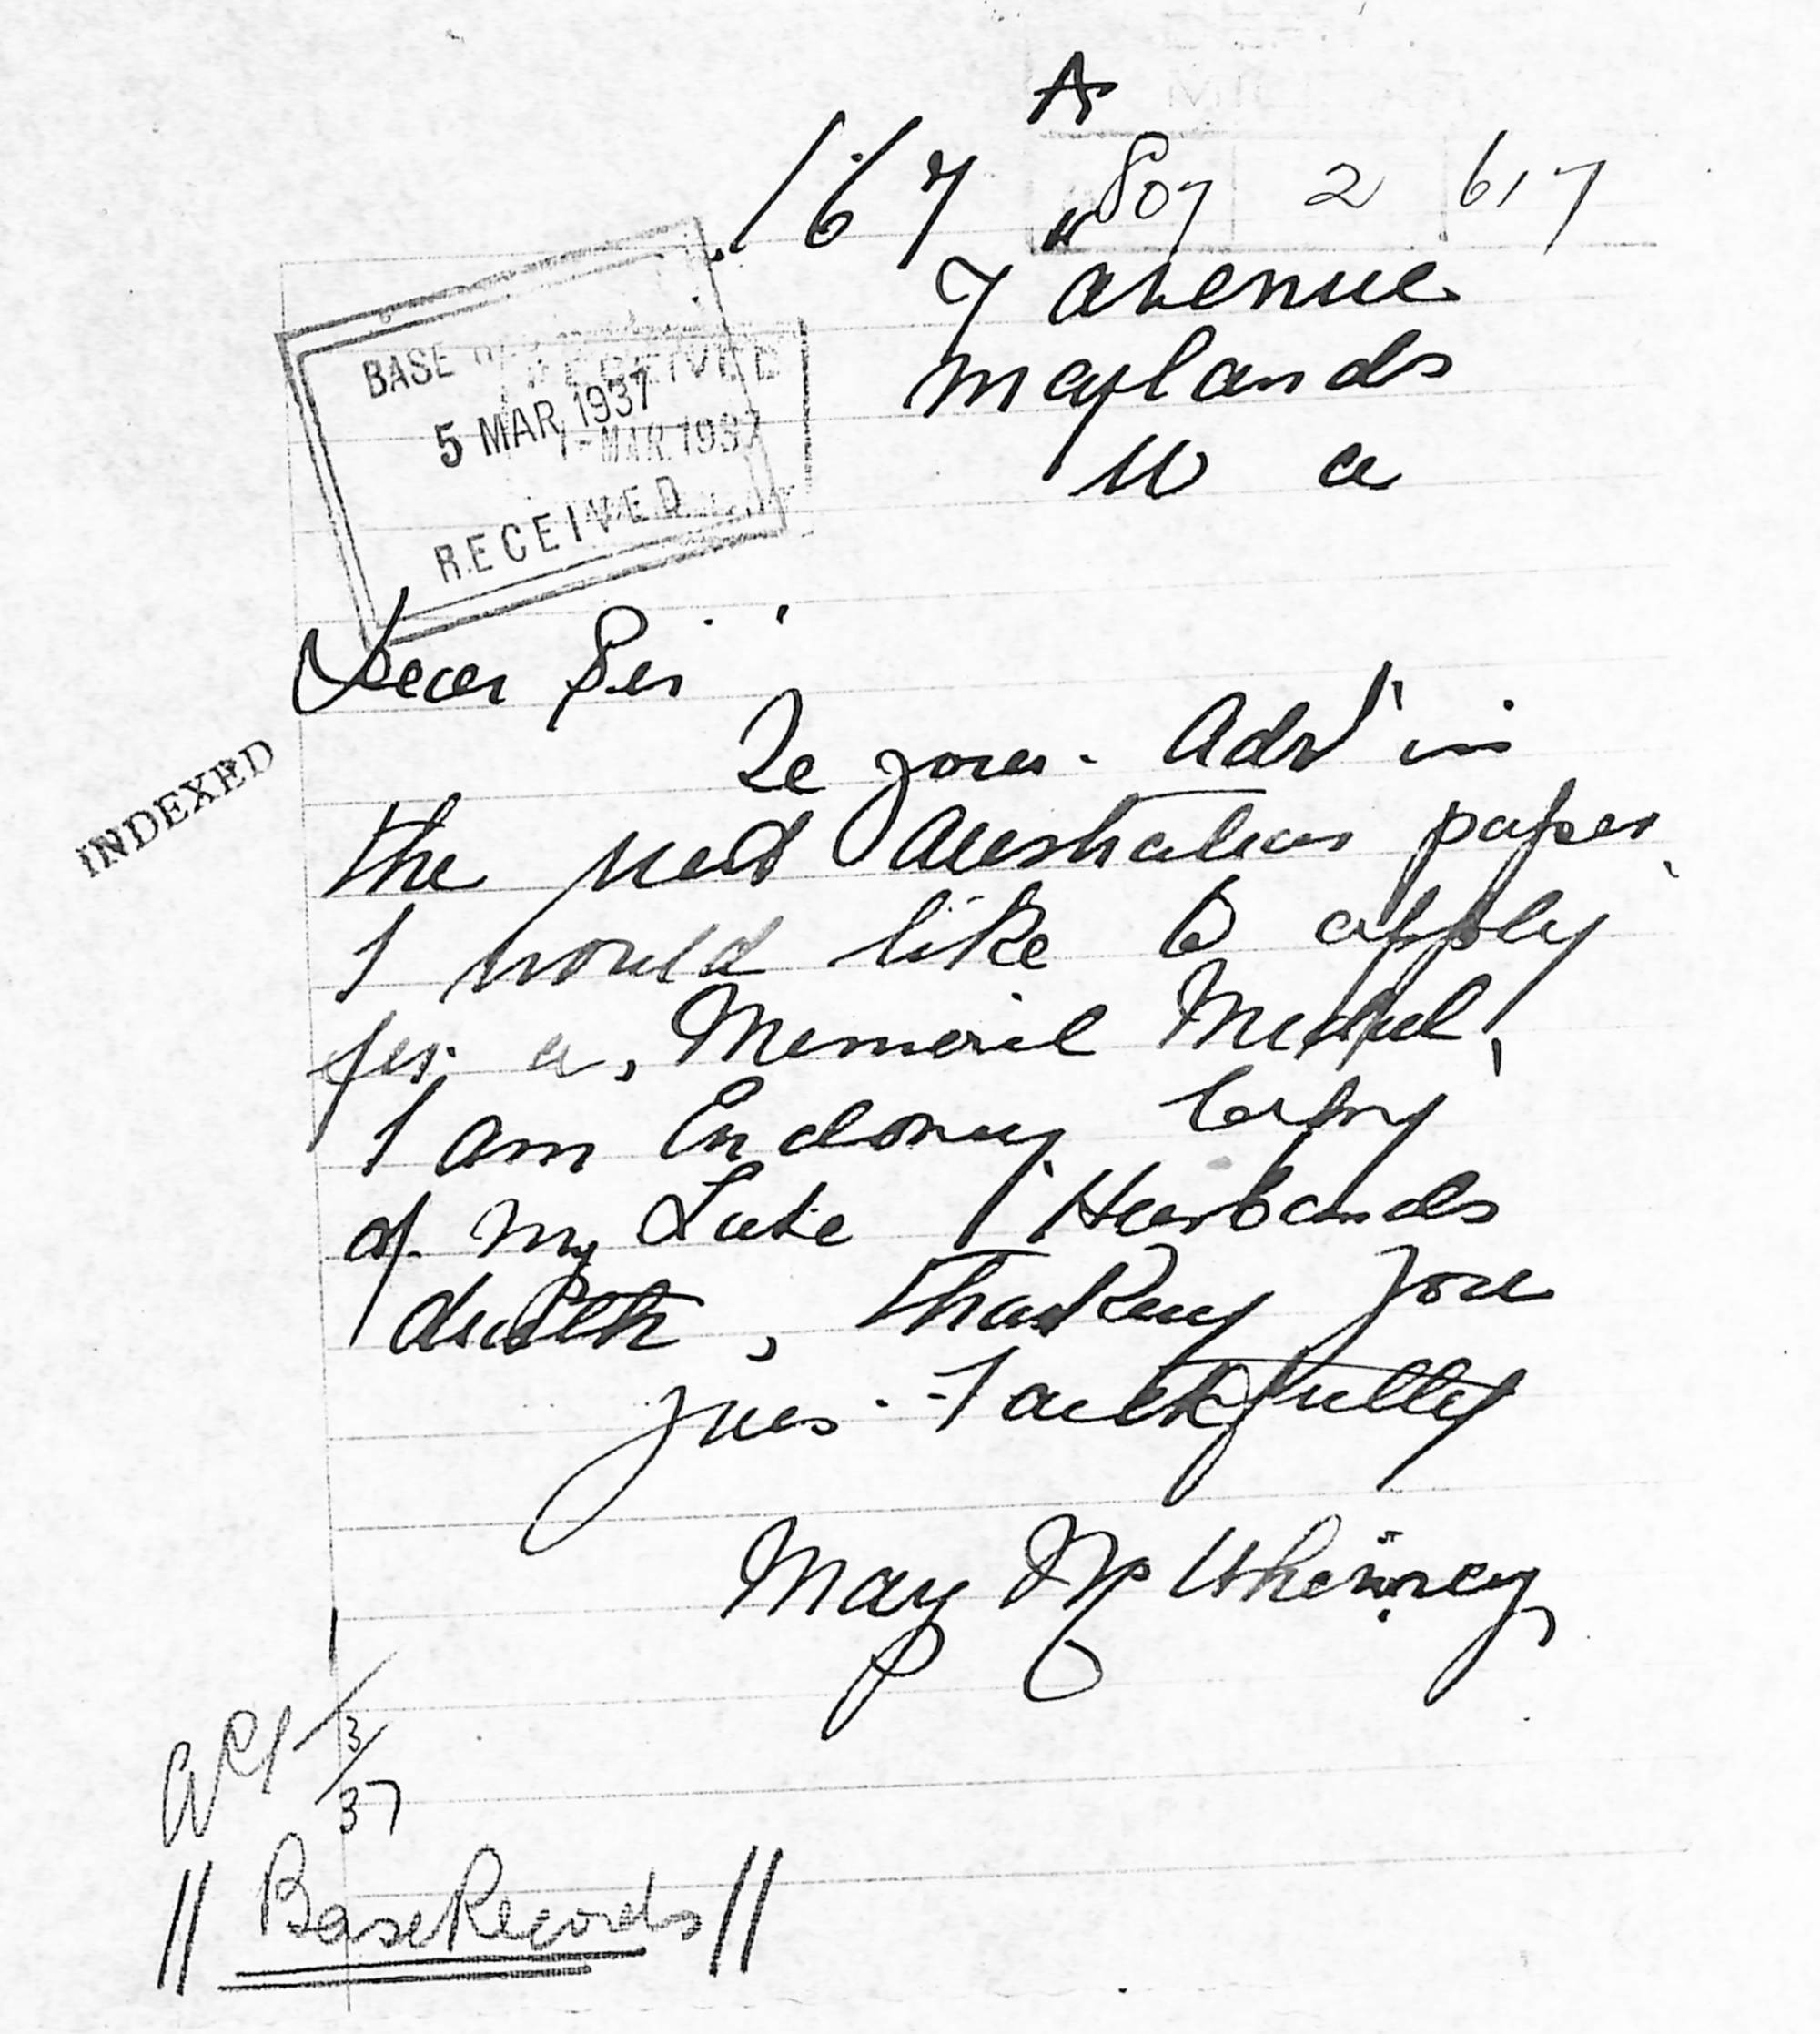 A
167 807 2 617
7 avenue
Maylands
W a
BASE
RECEIVED
5 MAR 1937
1 - MAR 1937
RECEIVED
Dear Sir
INDEXED
Re your Adv' in
the West Australian paper
I would like to apply
for a, Memoril Medal,
I am Enclosing Copy
of my Late Husbands
death, Thanking you
yours Faithfully
May Mc Whinney
3/37
Base Records